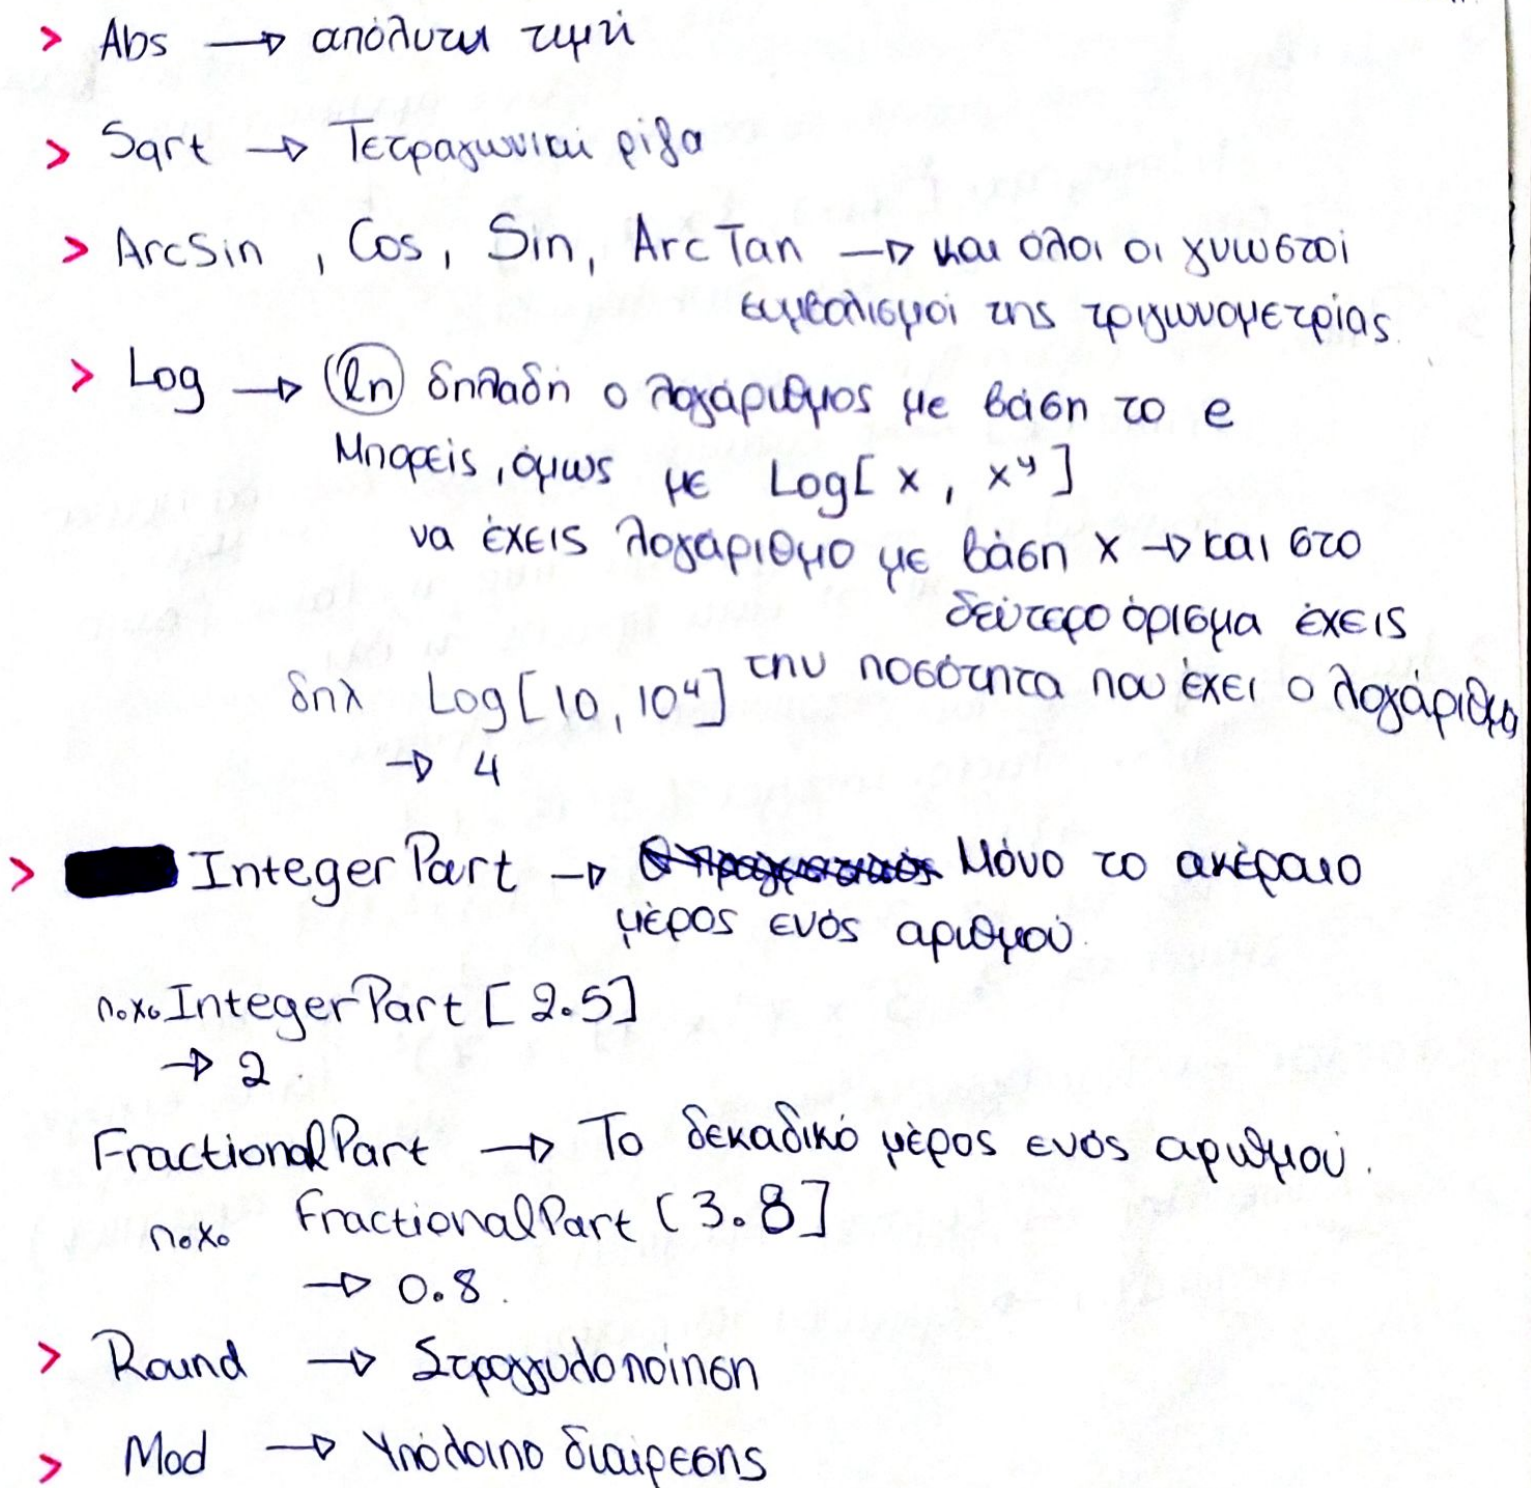 > Abs → απόλυτη τιμή
> Sqrt → Τετραγωνική ρίζα
> ArcSin , Cos , Sin, ArcTan → και όλοι οι γνωστοί
συμβολισμοί της τριγωνομετρίας.
> Log → ln δηλαδή ο λογάριθμος με βάση το e
Μπορείς, όμως με Log[ x , x^y ]
να έχεις λογάριθμο με βάση x → και στο
δεύτερο όρισμα έχεις
την ποσότητα που έχει ο λογάριθμο
δηλ Log[10, 10^4]
→ 4
> Integer Part → Μόνο το ακέραιο
μέρος ενός αριθμού.
π.χ. IntegerPart [ 2.5]
→ 2
FractionalPart → Το δεκαδικό μέρος ενός αριθμού.
π.χ. FractionalPart [3.8]
→ 0.8.
> Round → Στρογγυλοποίηση
> Mod → Υπόλοιπο διαίρεσης